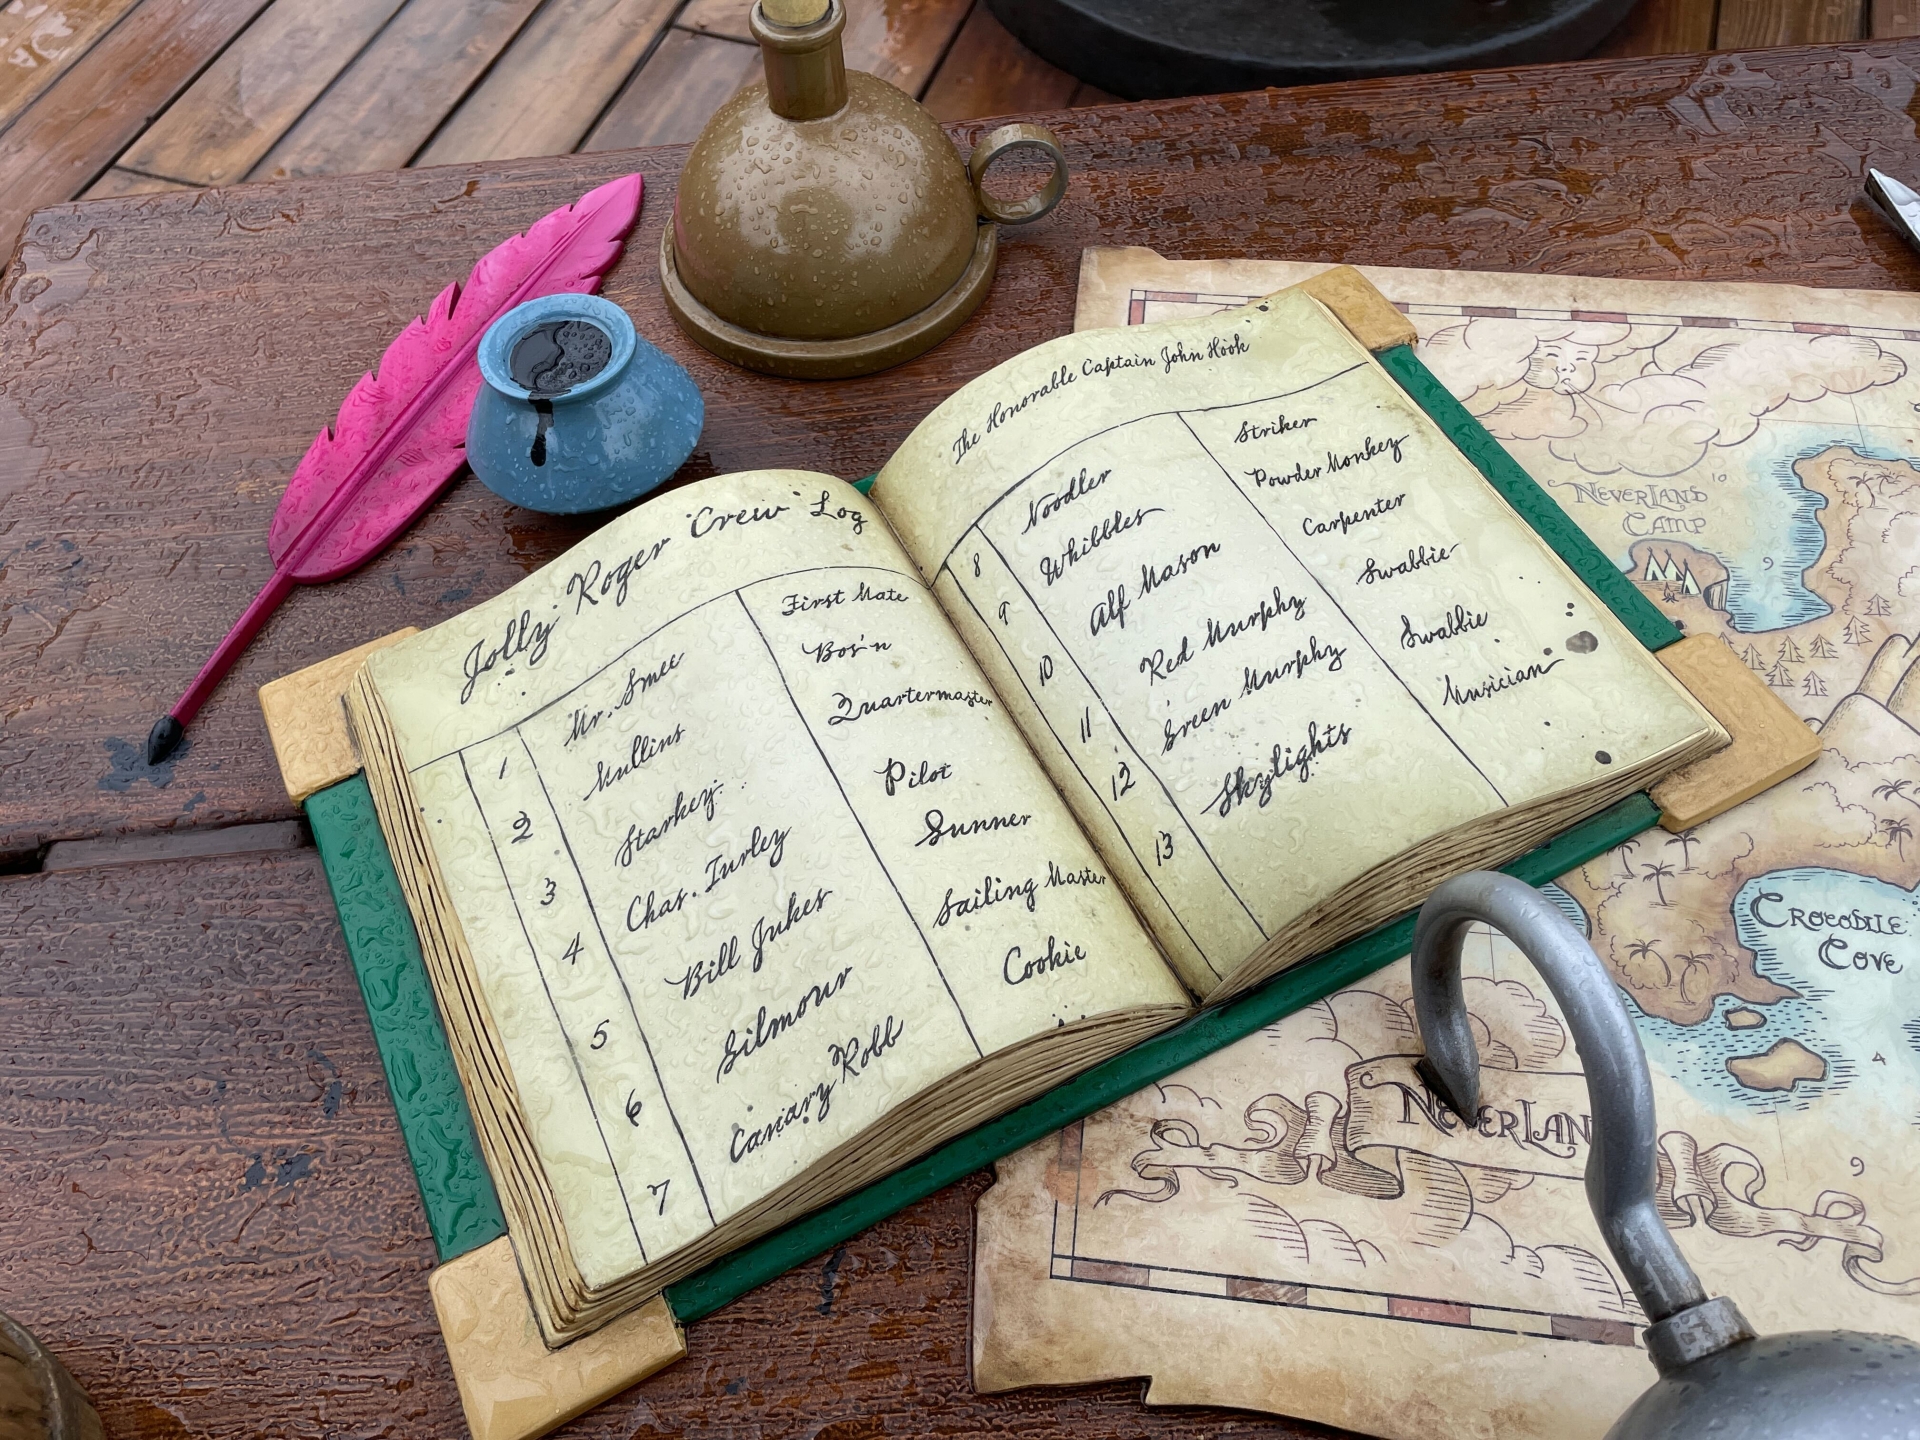 Jolly Roger Crew Log
1 Mr. Smee First Mate
2 Mullins Bos'n
3 Starkey Quartermaster
4 Chas. Turley Pilot
5 Bill Jukes Gunner
6 Gilmour Sailing Master
7 Canary Robb Cookie
The Honorable Captain John Hook
8 Noodler Striker
9 Whibbles Powder Monkey
10 Alf Mason Carpenter
11 Red Murphy Swabbie
12 Green Murphy Swabbie
13 Skylights Musician
NEVERLAND
CAMP
9
CROCODILE
COVE
4
NEVERLAN
9